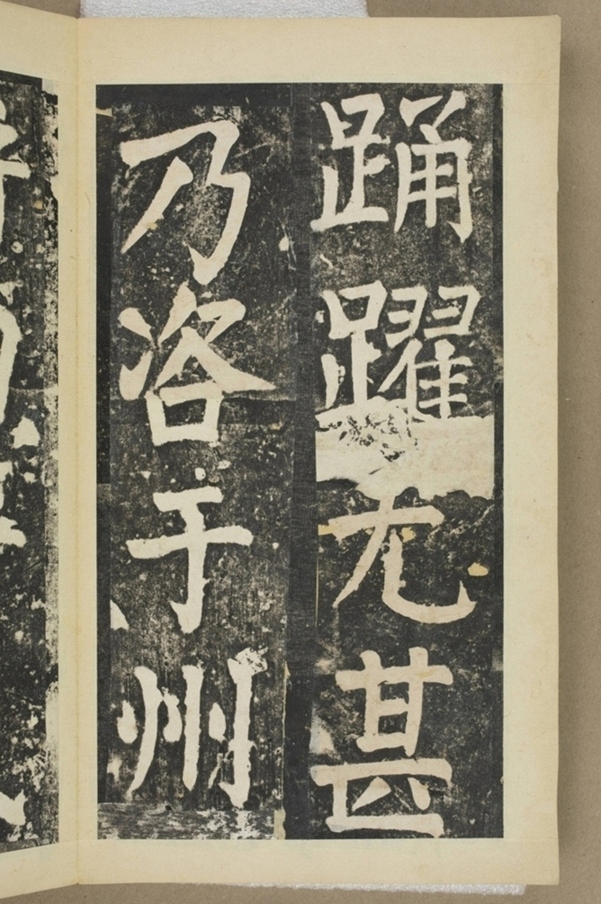 踊躍尤甚
乃咨于州